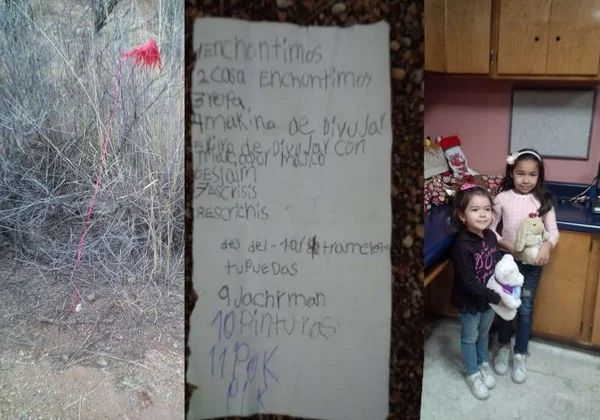 1 Enchontimos
2 Casa Enchontimos
3 ropa,
4 makina de Divujar
5 libro de Divujar con
marcador maJico
6 Eslaim
7 Escrisis
8 Escrichis
des del-1al tramelo
tuPUEDas
9 Jachiman
10 Pinturas
11